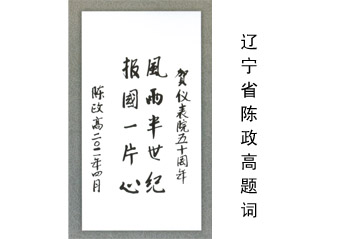 辽宁省陈政高题词
賀仪表院五十周年
風雨半世紀
报國一片心
陈政高二〇一一年四月